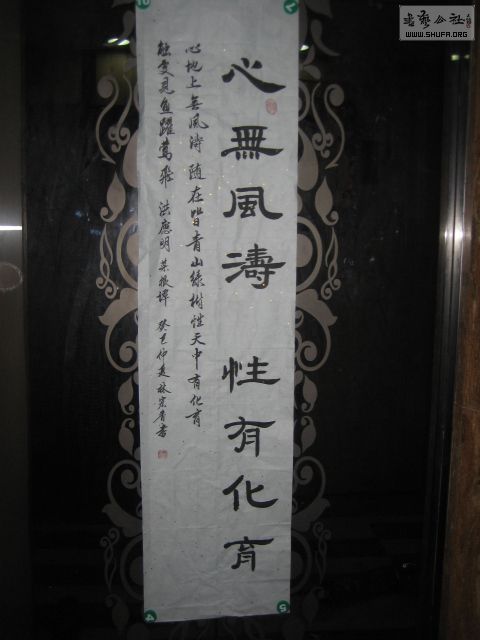 心無風濤 性有化育
心地上無風濤随在皆青山綠樹性天中有化育
觸處見魚躍鳶飛 洪應明 菜根譚 癸巳仲夏林宗青書
書藝公社
WWW.SHUFA.ORG